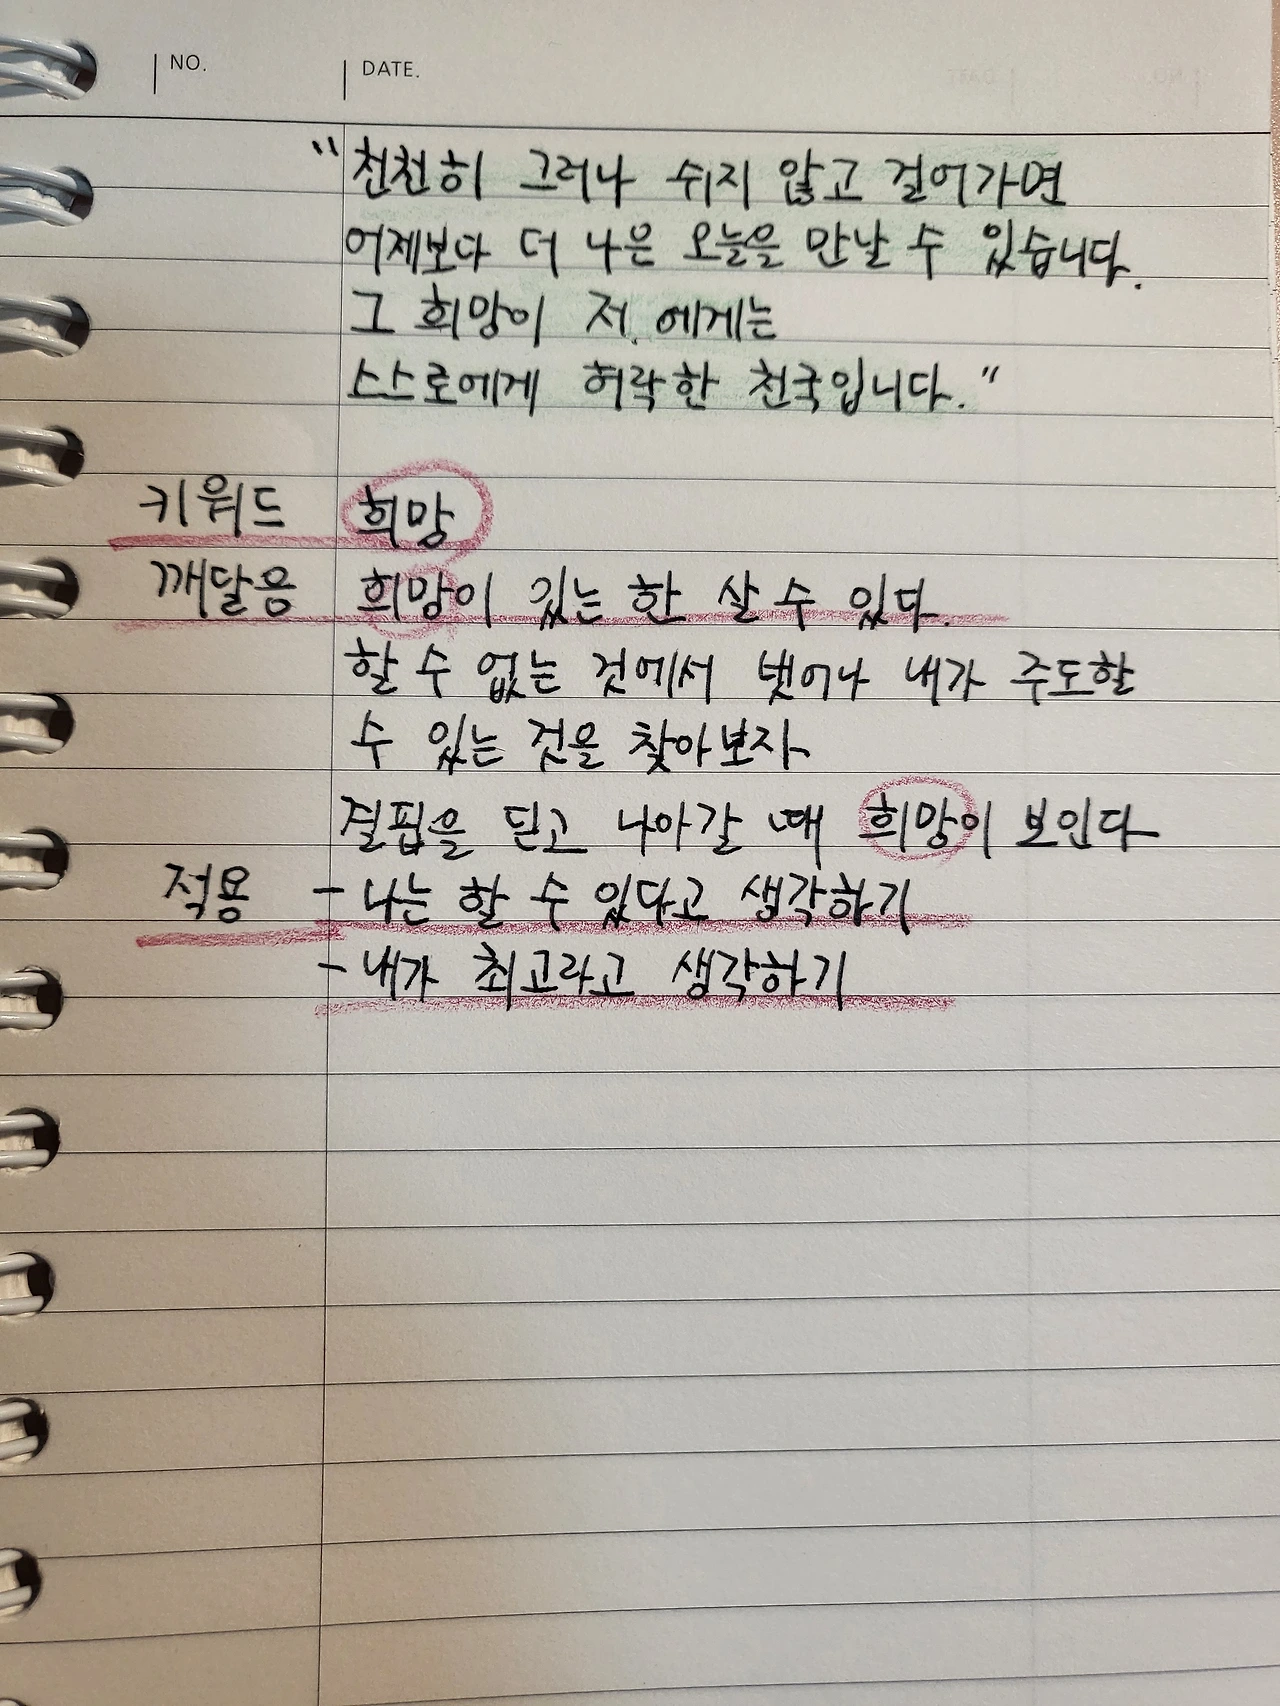 NO. DATE.
“천천히 그러나 쉬지 않고 걸어가면
어제보다 더 나은 오늘을 만날 수 있습니다.
그 희망이 저. 에게는
스스로에게 허락한 천국입니다.”
키워드 희망
깨달음 희망이 있는 한 살 수 있다.
할 수 없는 것에서 벗어나 내가 주도할
수 있는 것을 찾아보자
결핍을 딛고 나아갈 때 희망이 보인다
적용 - 나는 할 수 있다고 생각하기
- 내가 최고라고 생각하기